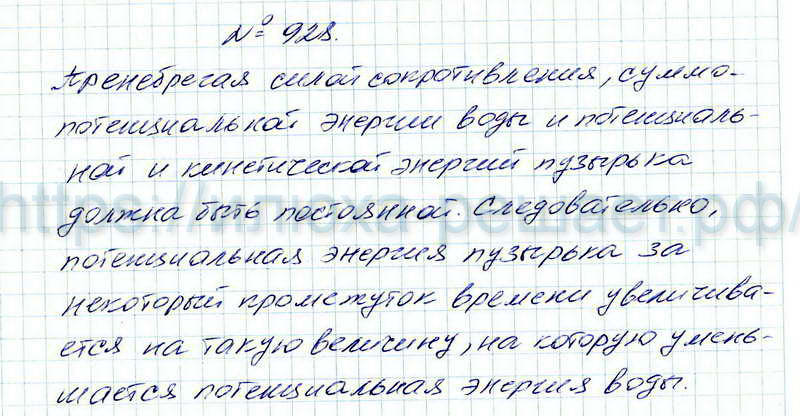 № 928.
Пренебрегая силой сопротивления, суммо-
потенциальной энергии воды и потенциаль-
ной и кинетической энергий пузырька
должна быть постоянной. Следовательно,
потенциальная энергия пузырька за
некоторый промежуток времени увеличива-
ется на такую величину, на которую умень-
шается потенциальная энергия воды.